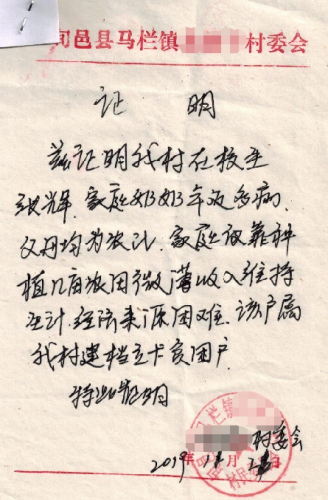 旬邑县马栏镇 村委会
证 明
兹证明我村在校生
张辉，家庭奶奶年迈多病，
父母均为农民，家庭仅靠种
植几亩农田微薄收入维持
生计，经济来源困难，该户属
我村建档立卡贫困户
特此证明
村委会
2019年 月 日